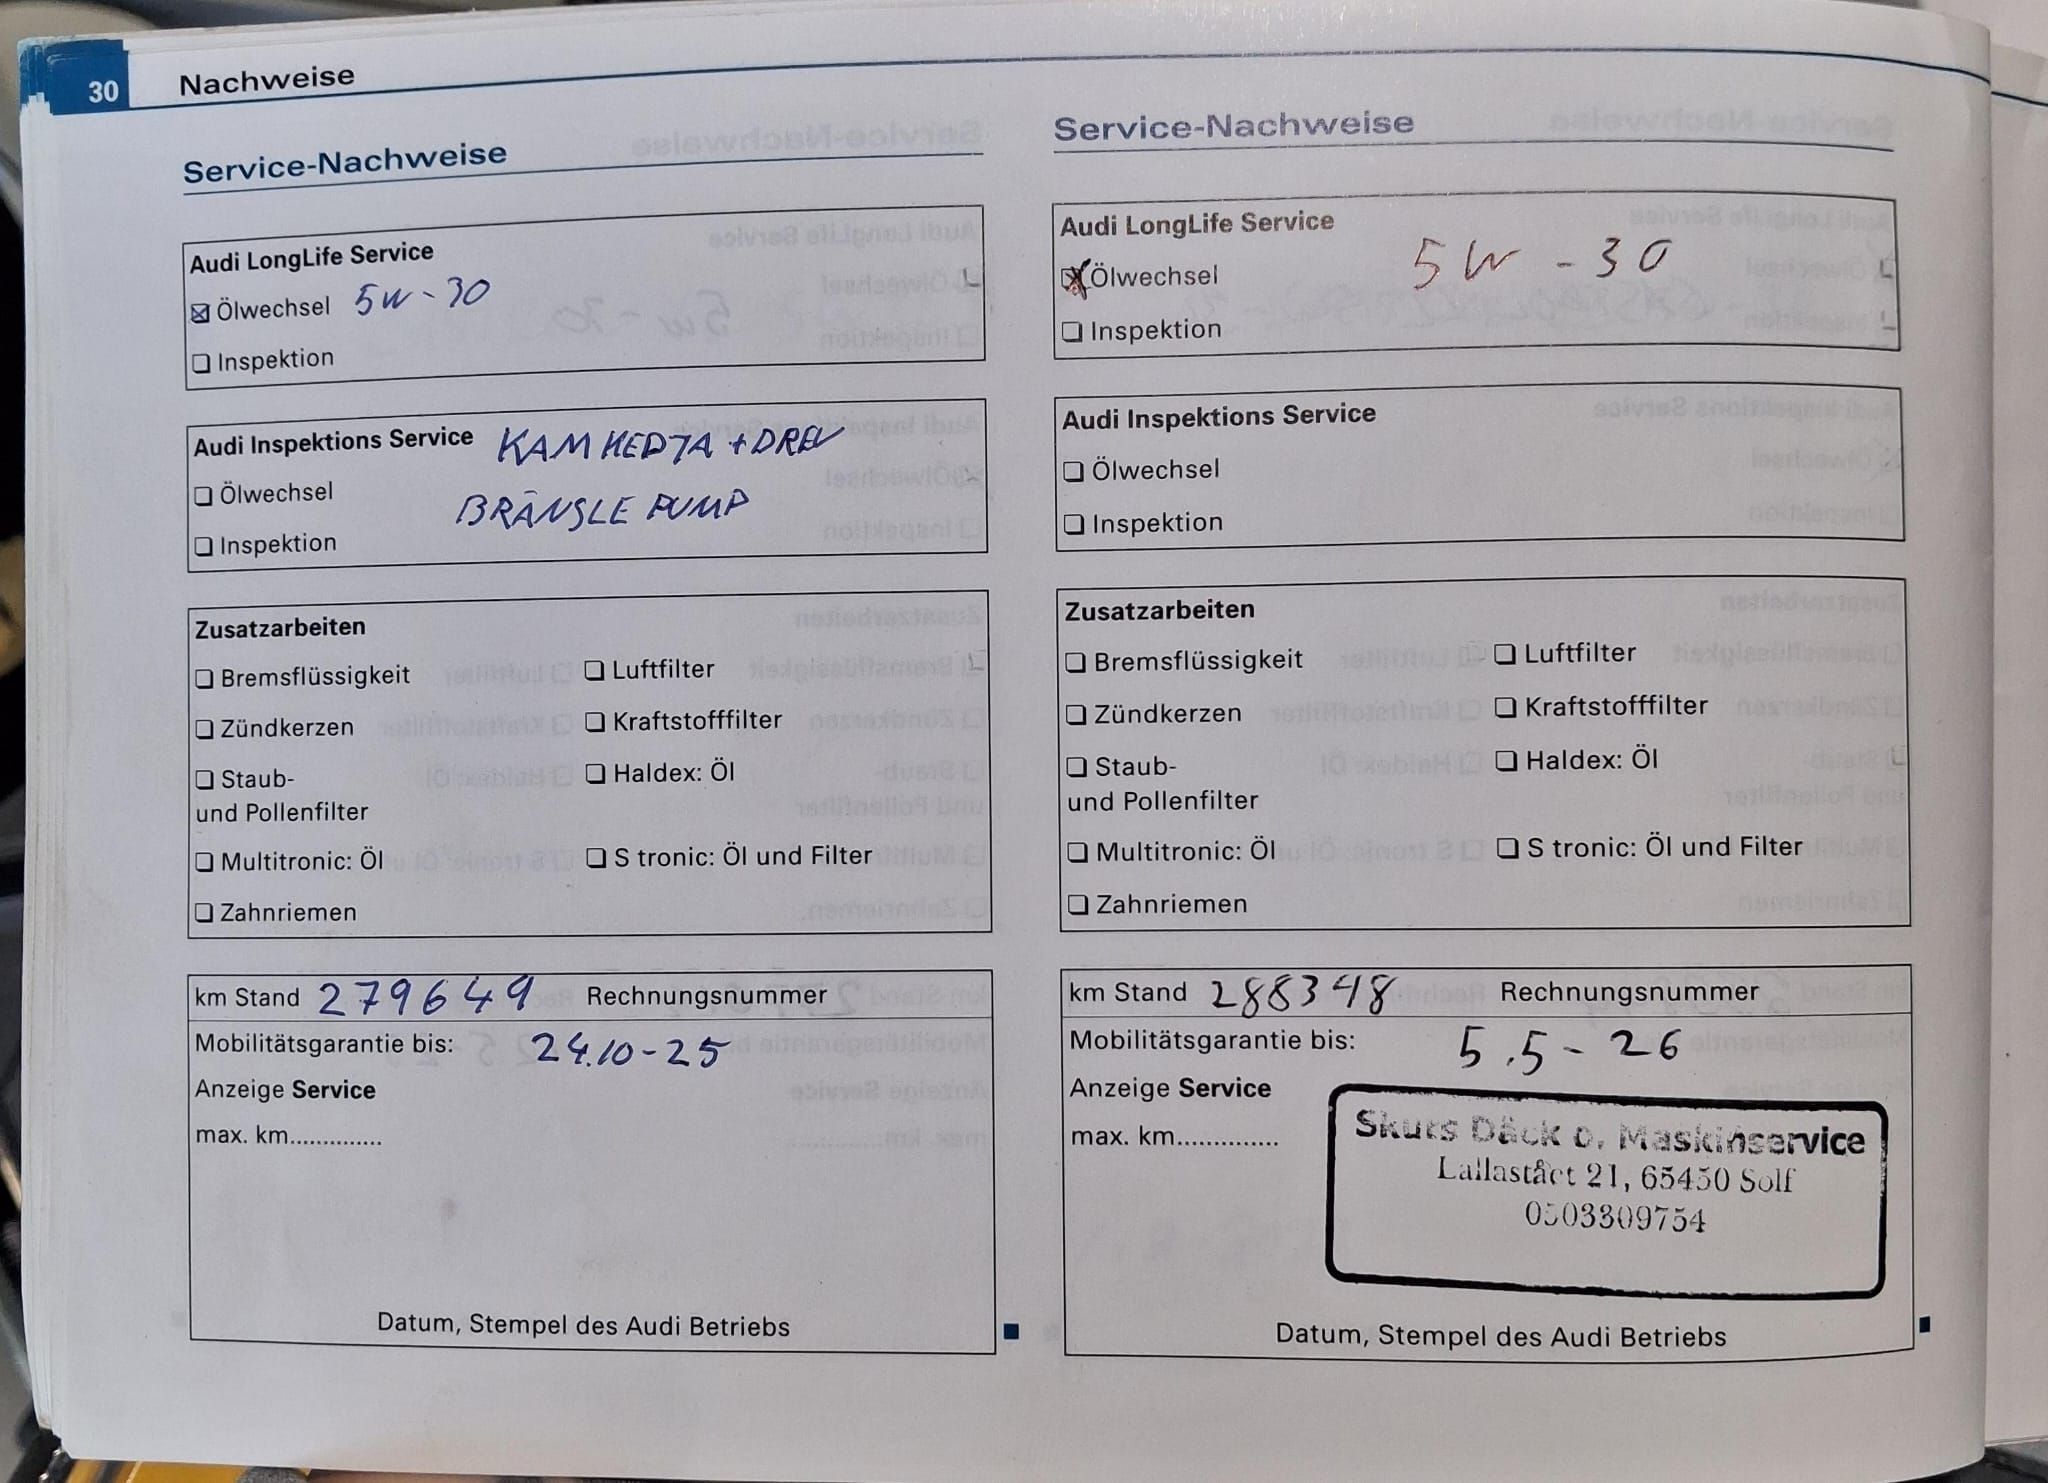 30 Nachweise
Service-Nachweise
Audi LongLife Service
Ölwechsel 5W-30
Inspektion
Audi Inspektions Service KAMKEDJA + DREV
Ölwechsel BRÄNSLE PUMP
Inspektion
Zusatzarbeiten
Bremsflüssigkeit Luftfilter
Zündkerzen Kraftstofffilter
Staub- Haldex: Öl
und Pollenfilter
Multitronic: Öl S tronic: Öl und Filter
Zahnriemen
km Stand 279649 Rechnungsnummer
Mobilitätsgarantie bis: 24.10-25
Anzeige Service
max. km..............
Datum, Stempel des Audi Betriebs
Service-Nachweise
Audi LongLife Service
Ölwechsel 5W-30
Inspektion
Audi Inspektions Service
Ölwechsel
Inspektion
Zusatzarbeiten
Bremsflüssigkeit Luftfilter
Zündkerzen Kraftstofffilter
Staub- Haldex: Öl
und Pollenfilter
Multitronic: Öl S tronic: Öl und Filter
Zahnriemen
km Stand 288348 Rechnungsnummer
Mobilitätsgarantie bis: 5.5-26
Anzeige Service
max. km..............
Skurs Däck o. Maskinservice
21, 65450 Solf
0503309754
Datum, Stempel des Audi Betriebs